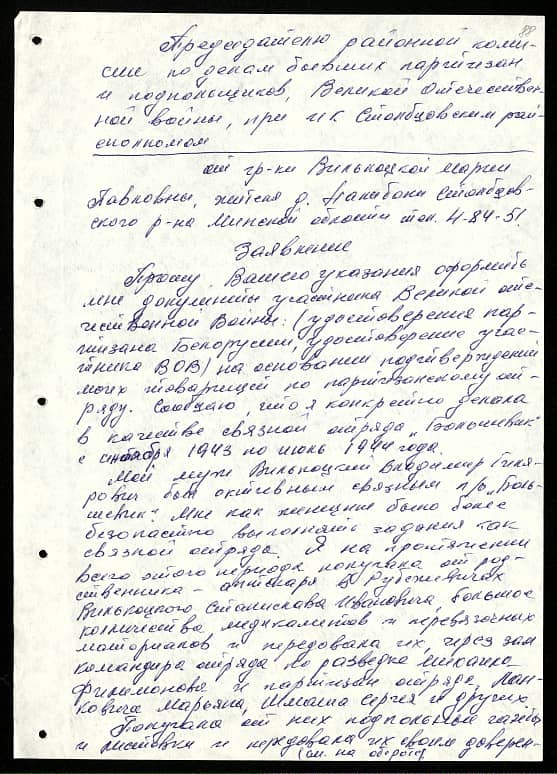 88
Председателю районной коми-
сии по делам бывших партизан
и подпольщиков, Великой Отечествен-
ной войны, при ик Столбцовским рай-
сполкомом
от гр-ки Вильноцкой Марии
Павловны, жителя д. Налибоки Столбцов-
ского р-на Минской области тел. 4-84-51.
Заявление
Прошу Вашего указания оформить
мне документы участника Великой оте-
чественной Войны: (удостоверения пар-
тизана Белорусии, удостоверение учас-
тника ВОВ) на основании подтверждений
моих товарищей по партизанскому от-
ряду. Сообщаю, что я конкретно делала
в качестве связной отряда „Большевик"
с ноября 1943 по июль 1944 года.
Мой муж Вильноцкий Владимир Гиля-
рович был активным связным п/о „Боль-
шевик". Мне как женщине было более
безопастно выполнять задания так
связной отряда. Я на протяжении
всего этого периода получала от род-
ственника - аптекаря в Рубежевичах
Вильноцкого Станислава Ивановича, большое
количества медикаментов и перевязочных
материалов и передовала их, через зам
командира отряда по разведке Михаила
Филимонова и партизан отряда, Лан-
ковича Марьяна, Шмаина Сергея и других.
Получала от них подпольный газеты
и листовки и передовала их своим доверен-
(см. на обороте)